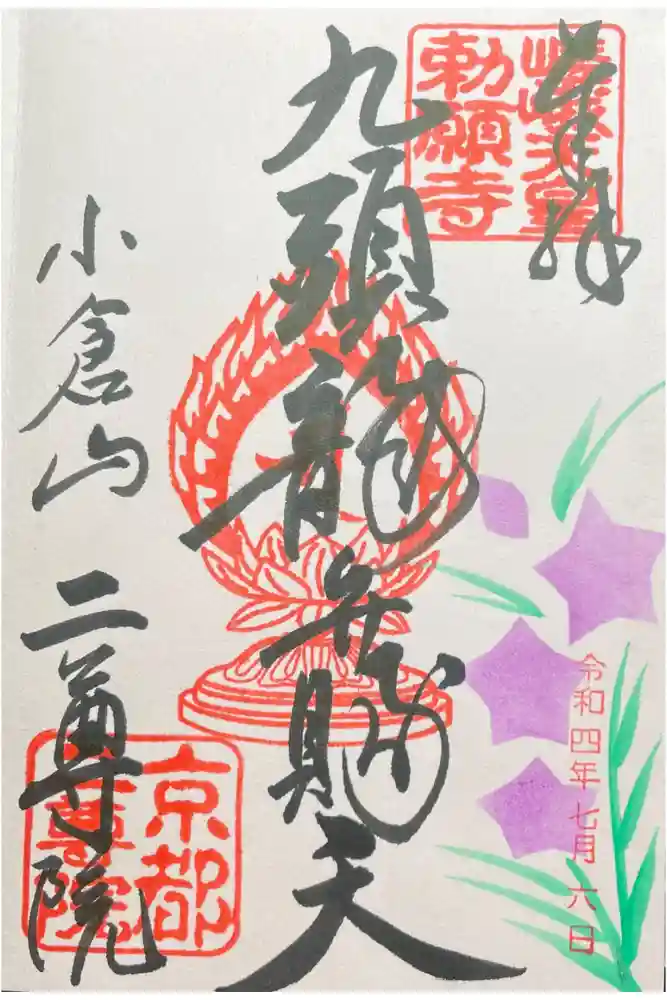 奉拝
嵯峨天皇
勅願寺
九頭龍弁財天
令和四年七月六日
小倉山
二尊院
京都
二尊院